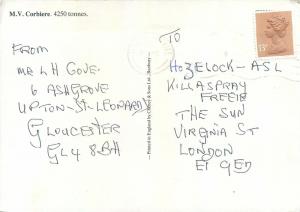 M.V. Corbiere. 4250 tonnes.
FROM
MR L H GOVE.
6 ASHGROVE
UPTON-ST-LEONARDS
GLOUCESTER
GL4 8BH
Printed in England by
& Sons Ltd.
TO
HOZELOCK-ASL
KILLASPRAY
FREEBIE
THE SUN
VIRGINIA ST
LONDON
E1 9ED
13P